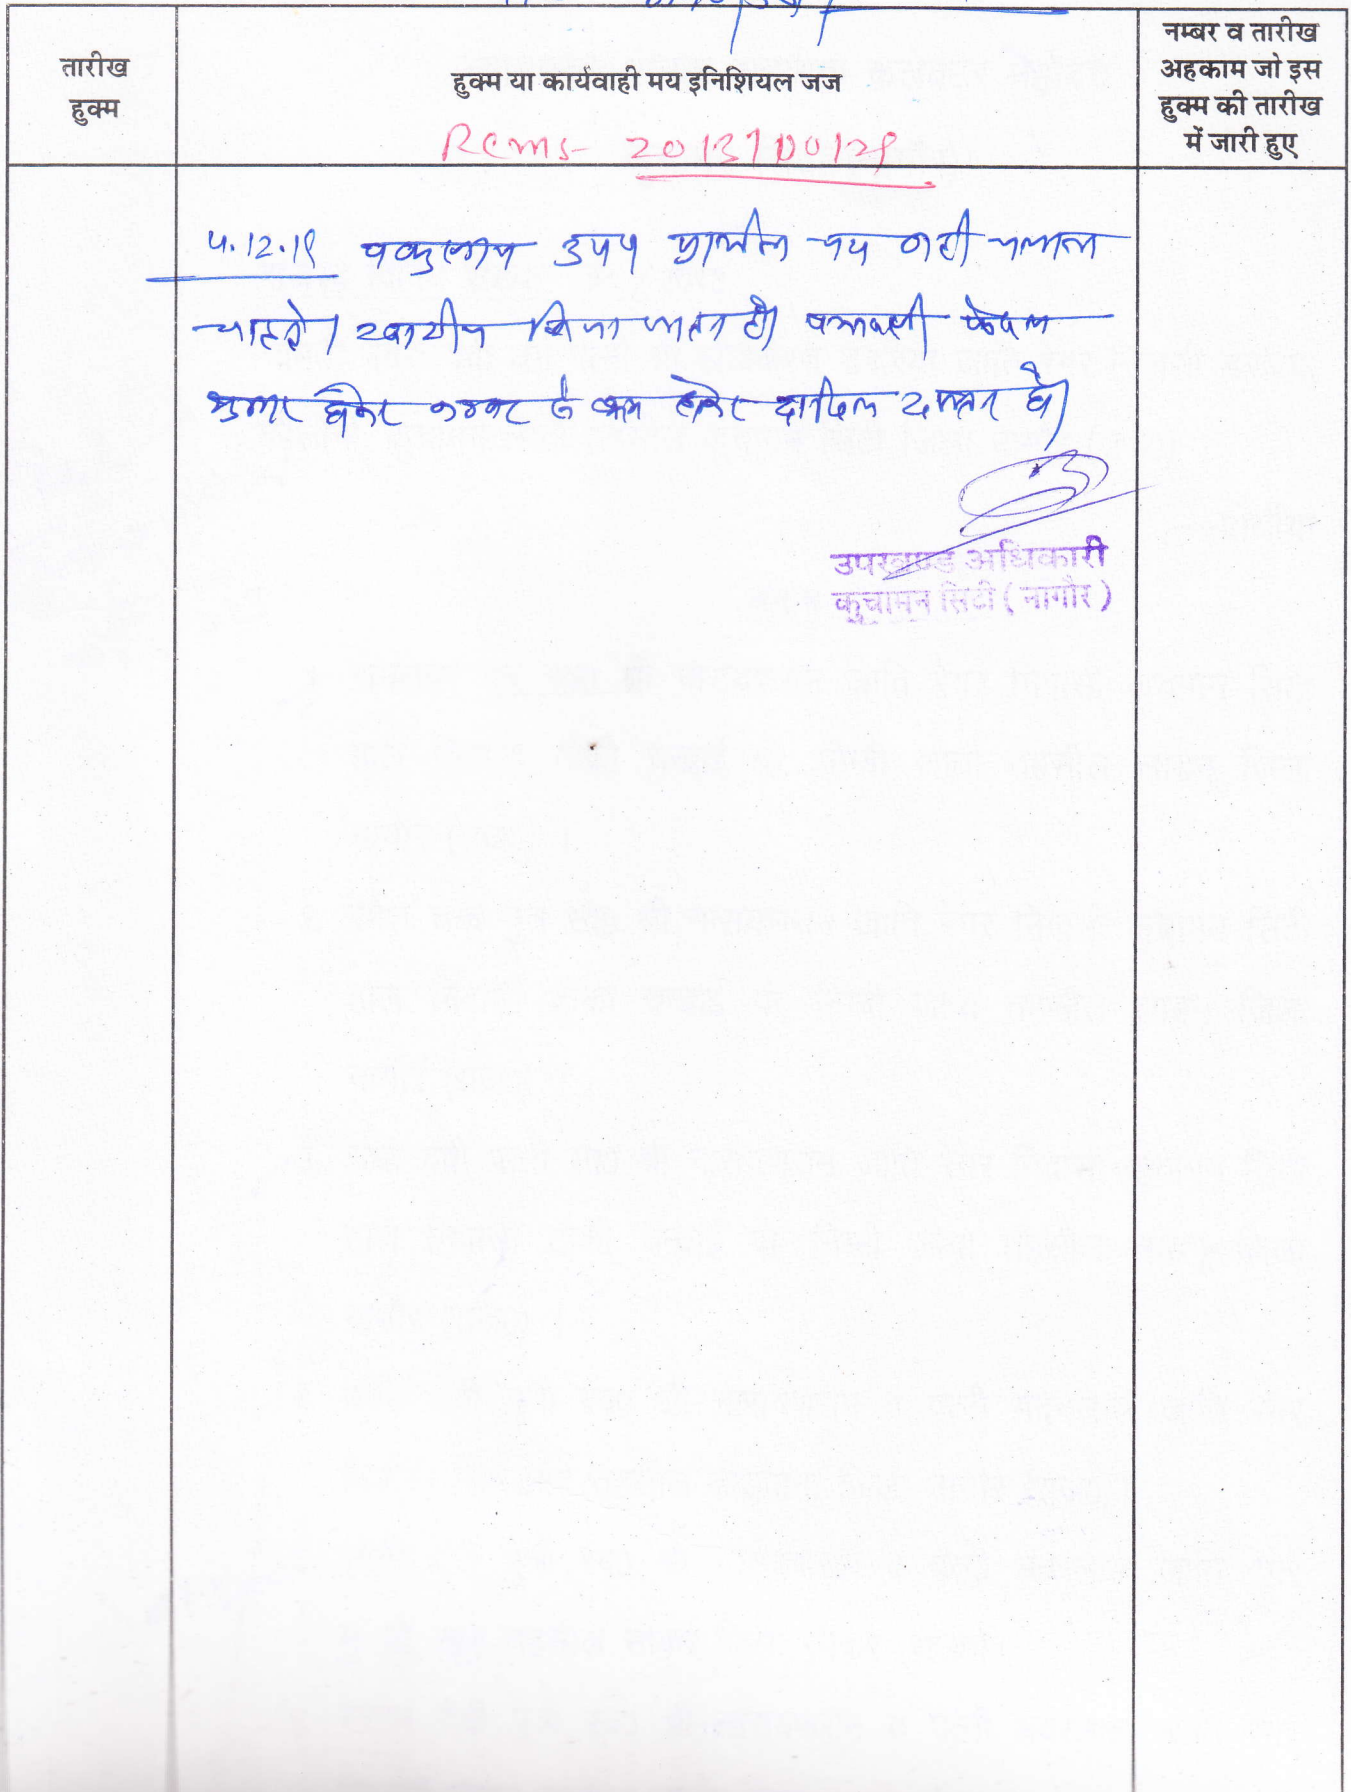 तारीख
हुक्म
हुक्म या कार्यवाही मय इनिशियल जज
नम्बर व तारीख
अहकाम जो इस
हुक्म की तारीख
में जारी हुए
Rcms- 2013/00129
वकुलाय उपप नही चलाना
चाहते। खारीज किया जाता है। पत्रावली फैसल
शुमार होकर नम्बर से कम होकर दाखिल दफ्तर हो।
उपखण्ड अधिकारी
कुचामन सिटी ( नागौर )